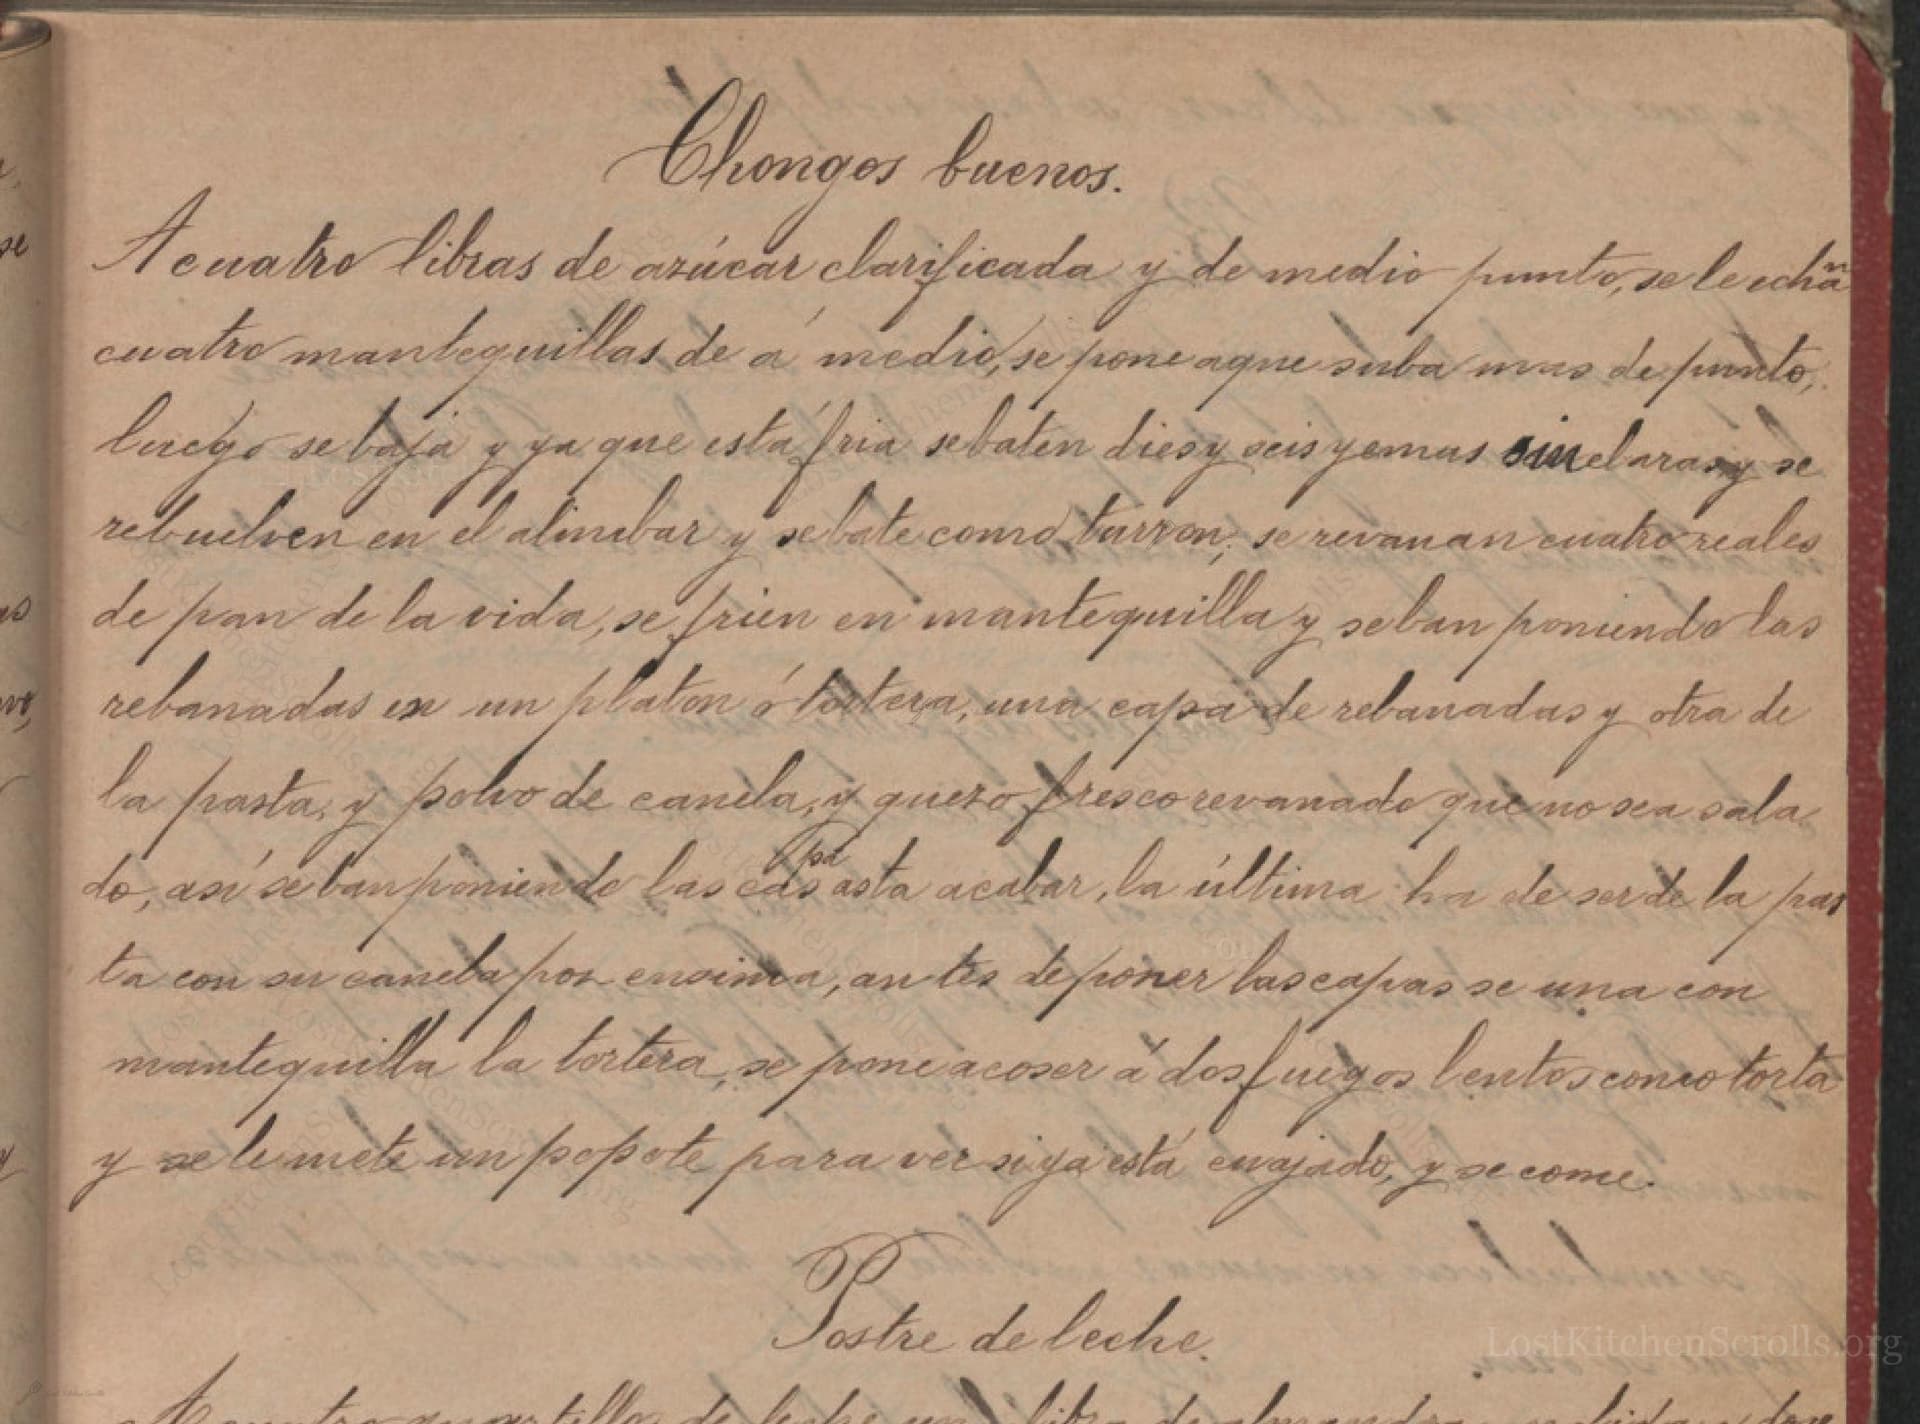 Chongos buenos.
A cuatro libras de azúcar clarificada y de medio punto, se le echan
cuatro mantequillas de á medio, se pone aque suba mas de punto,
luego se baja y ya que está fria se baten dies y seis yemas sin claras y se
rebuelven en el almibar y se bate como turron; se revanan cuatro reales
de pan de la vida, se frien en mantequilla y se ban poniendo las
rebanadas en un platon ó tortera, una capa de rebanadas y otra de
la pasta, y polvo de canela, y quezo fresco revanado que no sea sala
do, así se ban poniendo las capas asta acabar, la última ha de ser de la pas
ta con su canela por ensima, antes de poner las capas se una con
mantequilla la tortera, se pone a coser á dos fuegos lentos como torta
y se le mete un popote para ver si ya está cuajado, y se come.
Postre de leche.
A cuatro cuartillos de leche una libra de almendra
LostKitchenScrolls.org